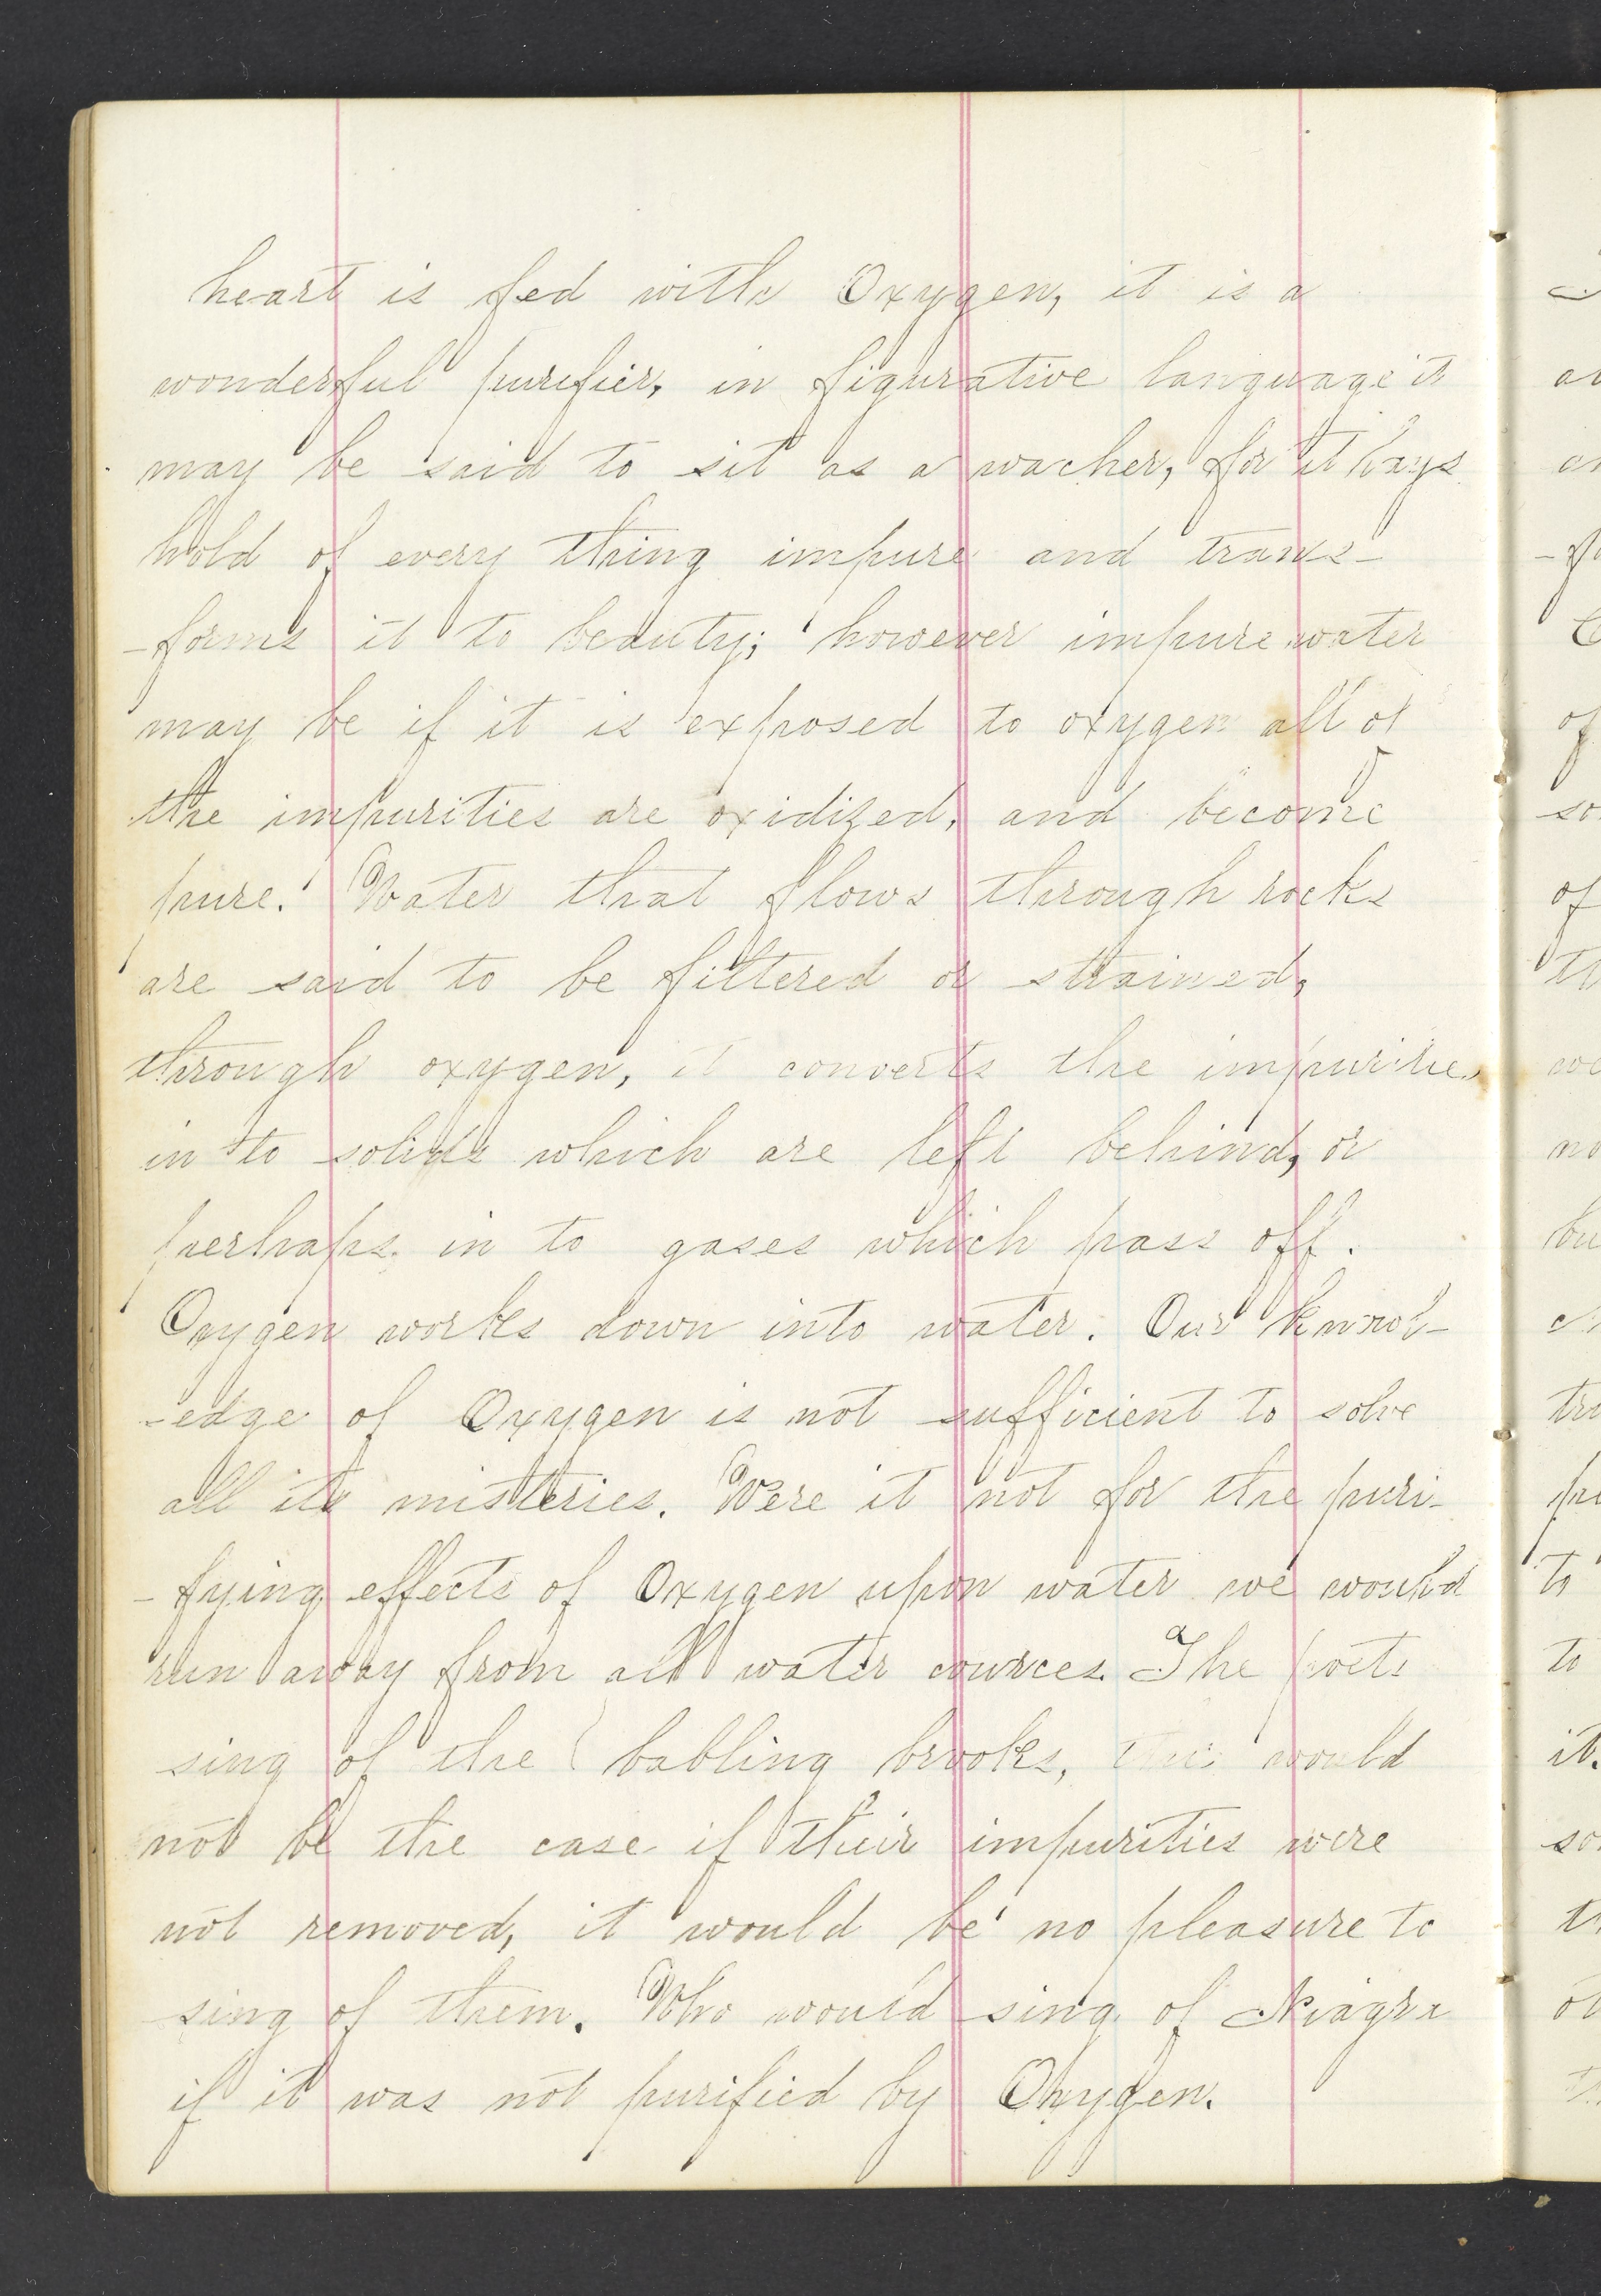 heart is fed with Oxygen, it is a
wonderful purifier, in figurative language it
may be said to sit as a wacher, for it lays
hold of every thing impure and trans-
-forms it to beauty; however impure water
may be if it is exposed to oxygen all of
the impurities are oxidized, and become
pure. Water that flows through rocks
are said to be filtered or strained,
through oxygen, it converts the impurities
in to solids which are left behind, or
perhaps in to gases which pass off.
Oxygen works down into water. Our knowl-
-edge of Oxygen is not sufficient to solve
all its misteries. Were it not for the puri-
-fying effects of Oxygen upon water we would
run away from all water cources. The poets
sing of the babling brooks, this would
not be the case if their impurities were
not removed, it would be no pleasure to
sing of them. Who would sing of Niagra
if it was not purified by Oxygen.